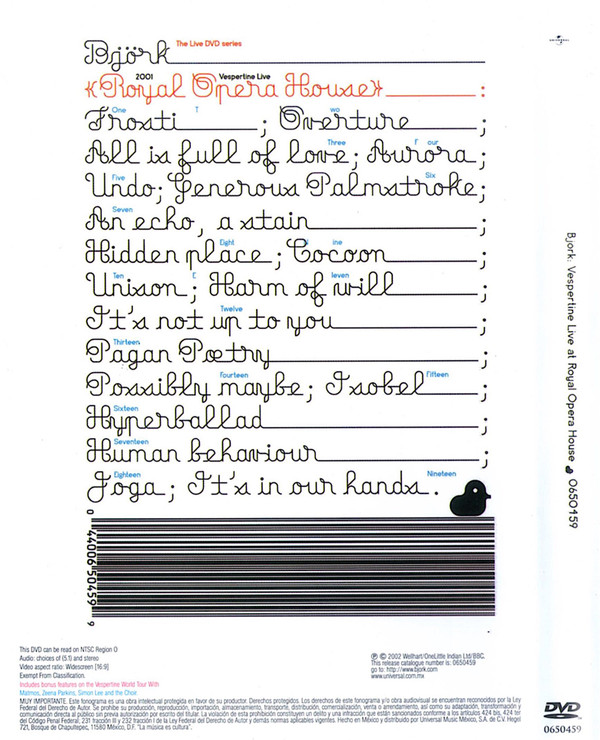 Björk The Live DVD series
2001 Vespertine Live
«Royal Opera House» :
One Two
Frosti ; Overture ;
Three Four
All is full of love; Aurora;
Five Six
Undo; Generous Palmstroke;
Seven
An echo, a stain ;
Eight Nine
Hidden place; Cocoon ;
Ten Eleven
Unison ; Harm of will ;
Twelve
It's not up to you ;
Thirteen
Pagan Poetry ;
Fourteen Fifteen
Possibly maybe; Isobel ;
Sixteen
Hyperballad ;
Seventeen
Human behaviour ;
Eighteen Nineteen
Joga; It's in our hands.
0 44006 50459 9
This DVD can be read on NTSC Region 0
Audio: choices of (5.1) and stereo
Video aspect ratio: Widescreen [16:9]
Exempt From Classification.
Includes bonus features on the Vespertine World Tour With
Matmos, Zeena Parkins, Simon Lee and the Choir
℗ © 2002 Wellhart/OneLittle Indian Ltd/BBC.
This release catalogue number is: 0650459
go to: http://www.bjork.com
www.universal.com.mx
MUY IMPORTANTE. Este fonograma es una obra intelectual protegida en favor de su productor. Derechos protegidos. Los derechos de este fonograma y/o obra audiovisual se encuentran reconocidos por la Ley
Federal del Derecho de Autor. Se prohíbe su producción, reproducción, importación, almacenamiento, transporte, distribución, comercialización, venta o arrendamiento, así como su adaptación, transformación y
comunicación directa al público sin previa autorización por escrito del titular. La violación de esta prohibición constituyen un delito y una infracción que están sancionados conforme a los artículos 424 bis, 424 ter
del Código Penal Federal; 231 fracción III y 232 fracción I de la Ley Federal del Derecho de Autor y demás normas aplicables vigentes. Hecho en México y distribuido por Universal Music México, S.A. de C.V. Hegel
721, Bosque de Chapultepec, 11580 México, D.F. "La música es cultura".
UNIVERSAL
Bjork: Vespertine Live at Royal Opera House 0650459
DVD
VIDEO
0650459